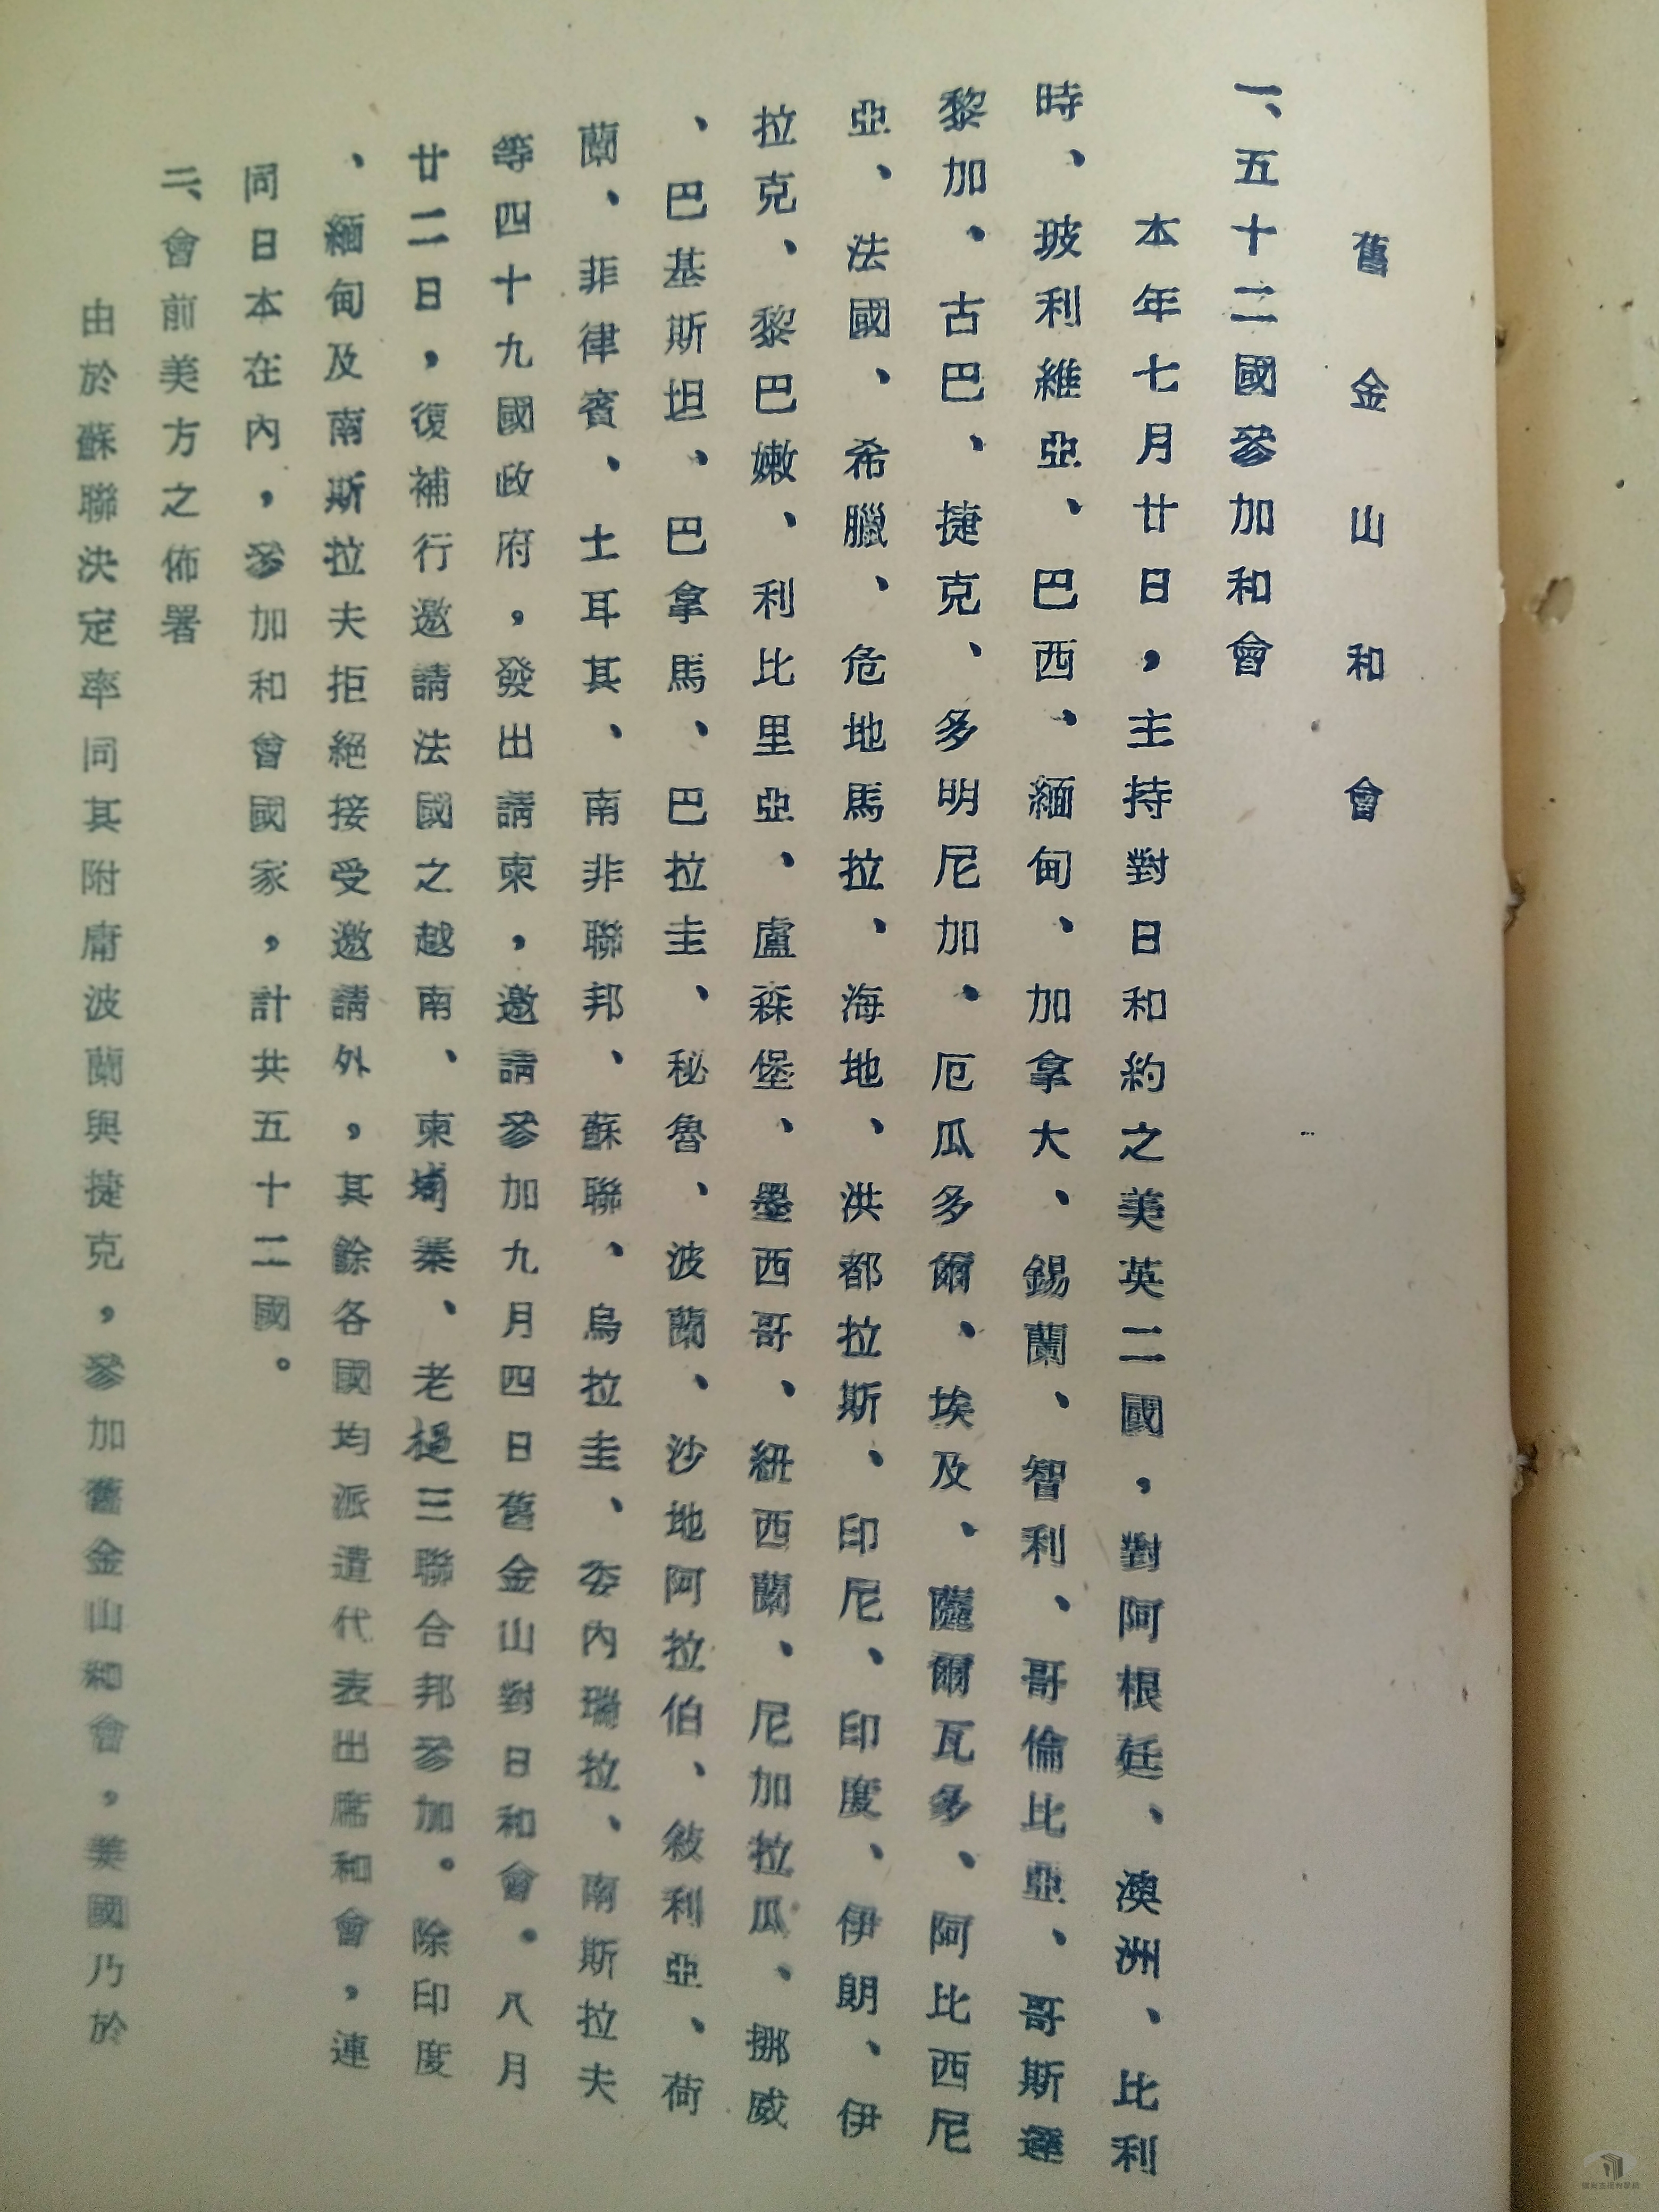 舊金山和會
一、五十二國參加和會
本年七月廿日，主持對日和約之美英二國，對阿根廷、澳洲、比利
時、玻利維亞、巴西、緬甸、加拿大、錫蘭、智利、哥倫比亞、哥斯達
黎加、古巴、捷克、多明尼加、厄瓜多爾、埃及、薩爾瓦多、阿比西尼
亞、法國、希臘、危地馬拉、海地、洪都拉斯、印尼、印度、伊朗、伊
拉克、黎巴嫩、利比里亞、盧森堡、墨西哥、紐西蘭、尼加拉瓜、挪威
、巴基斯坦、巴拿馬、巴拉圭、秘魯、波蘭、沙地阿拉伯、敍利亞、荷
蘭、菲律賓、土耳其、南非聯邦、蘇聯、烏拉圭、委內瑞拉、南斯拉夫
等四十九國政府，發出請柬，邀請參加九月四日舊金山對日和會。八月
廿二日，復補行邀請法國之越南、柬埔寨、老撾三聯合邦參加。除印度
、緬甸及南斯拉夫拒絕接受邀請外，其餘各國均派遣代表出席和會，連
同日本在內，參加和會國家，計共五十二國。
二、會前美方之佈署
由於蘇聯決定率同其附庸波蘭與捷克，參加舊金山和會，美國乃於